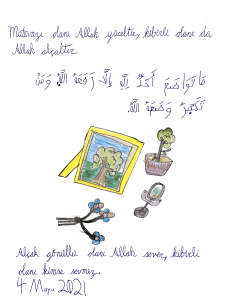 Mütevazı olanı Allah yüceltir, kibirli olanı da
Allah alçaltır.
مَا تَوَاضَعَ أَحَدٌ لِلَّهِ إِلَّا رَفَعَهُ اللَّهُ وَمَنْ
تَكَبَّرَ وَضَعَهُ اللَّهُ
Alçak gönüllü olanı Allah sever, kibirli
olanı kimse sevmez.
4 Mayıs 2021